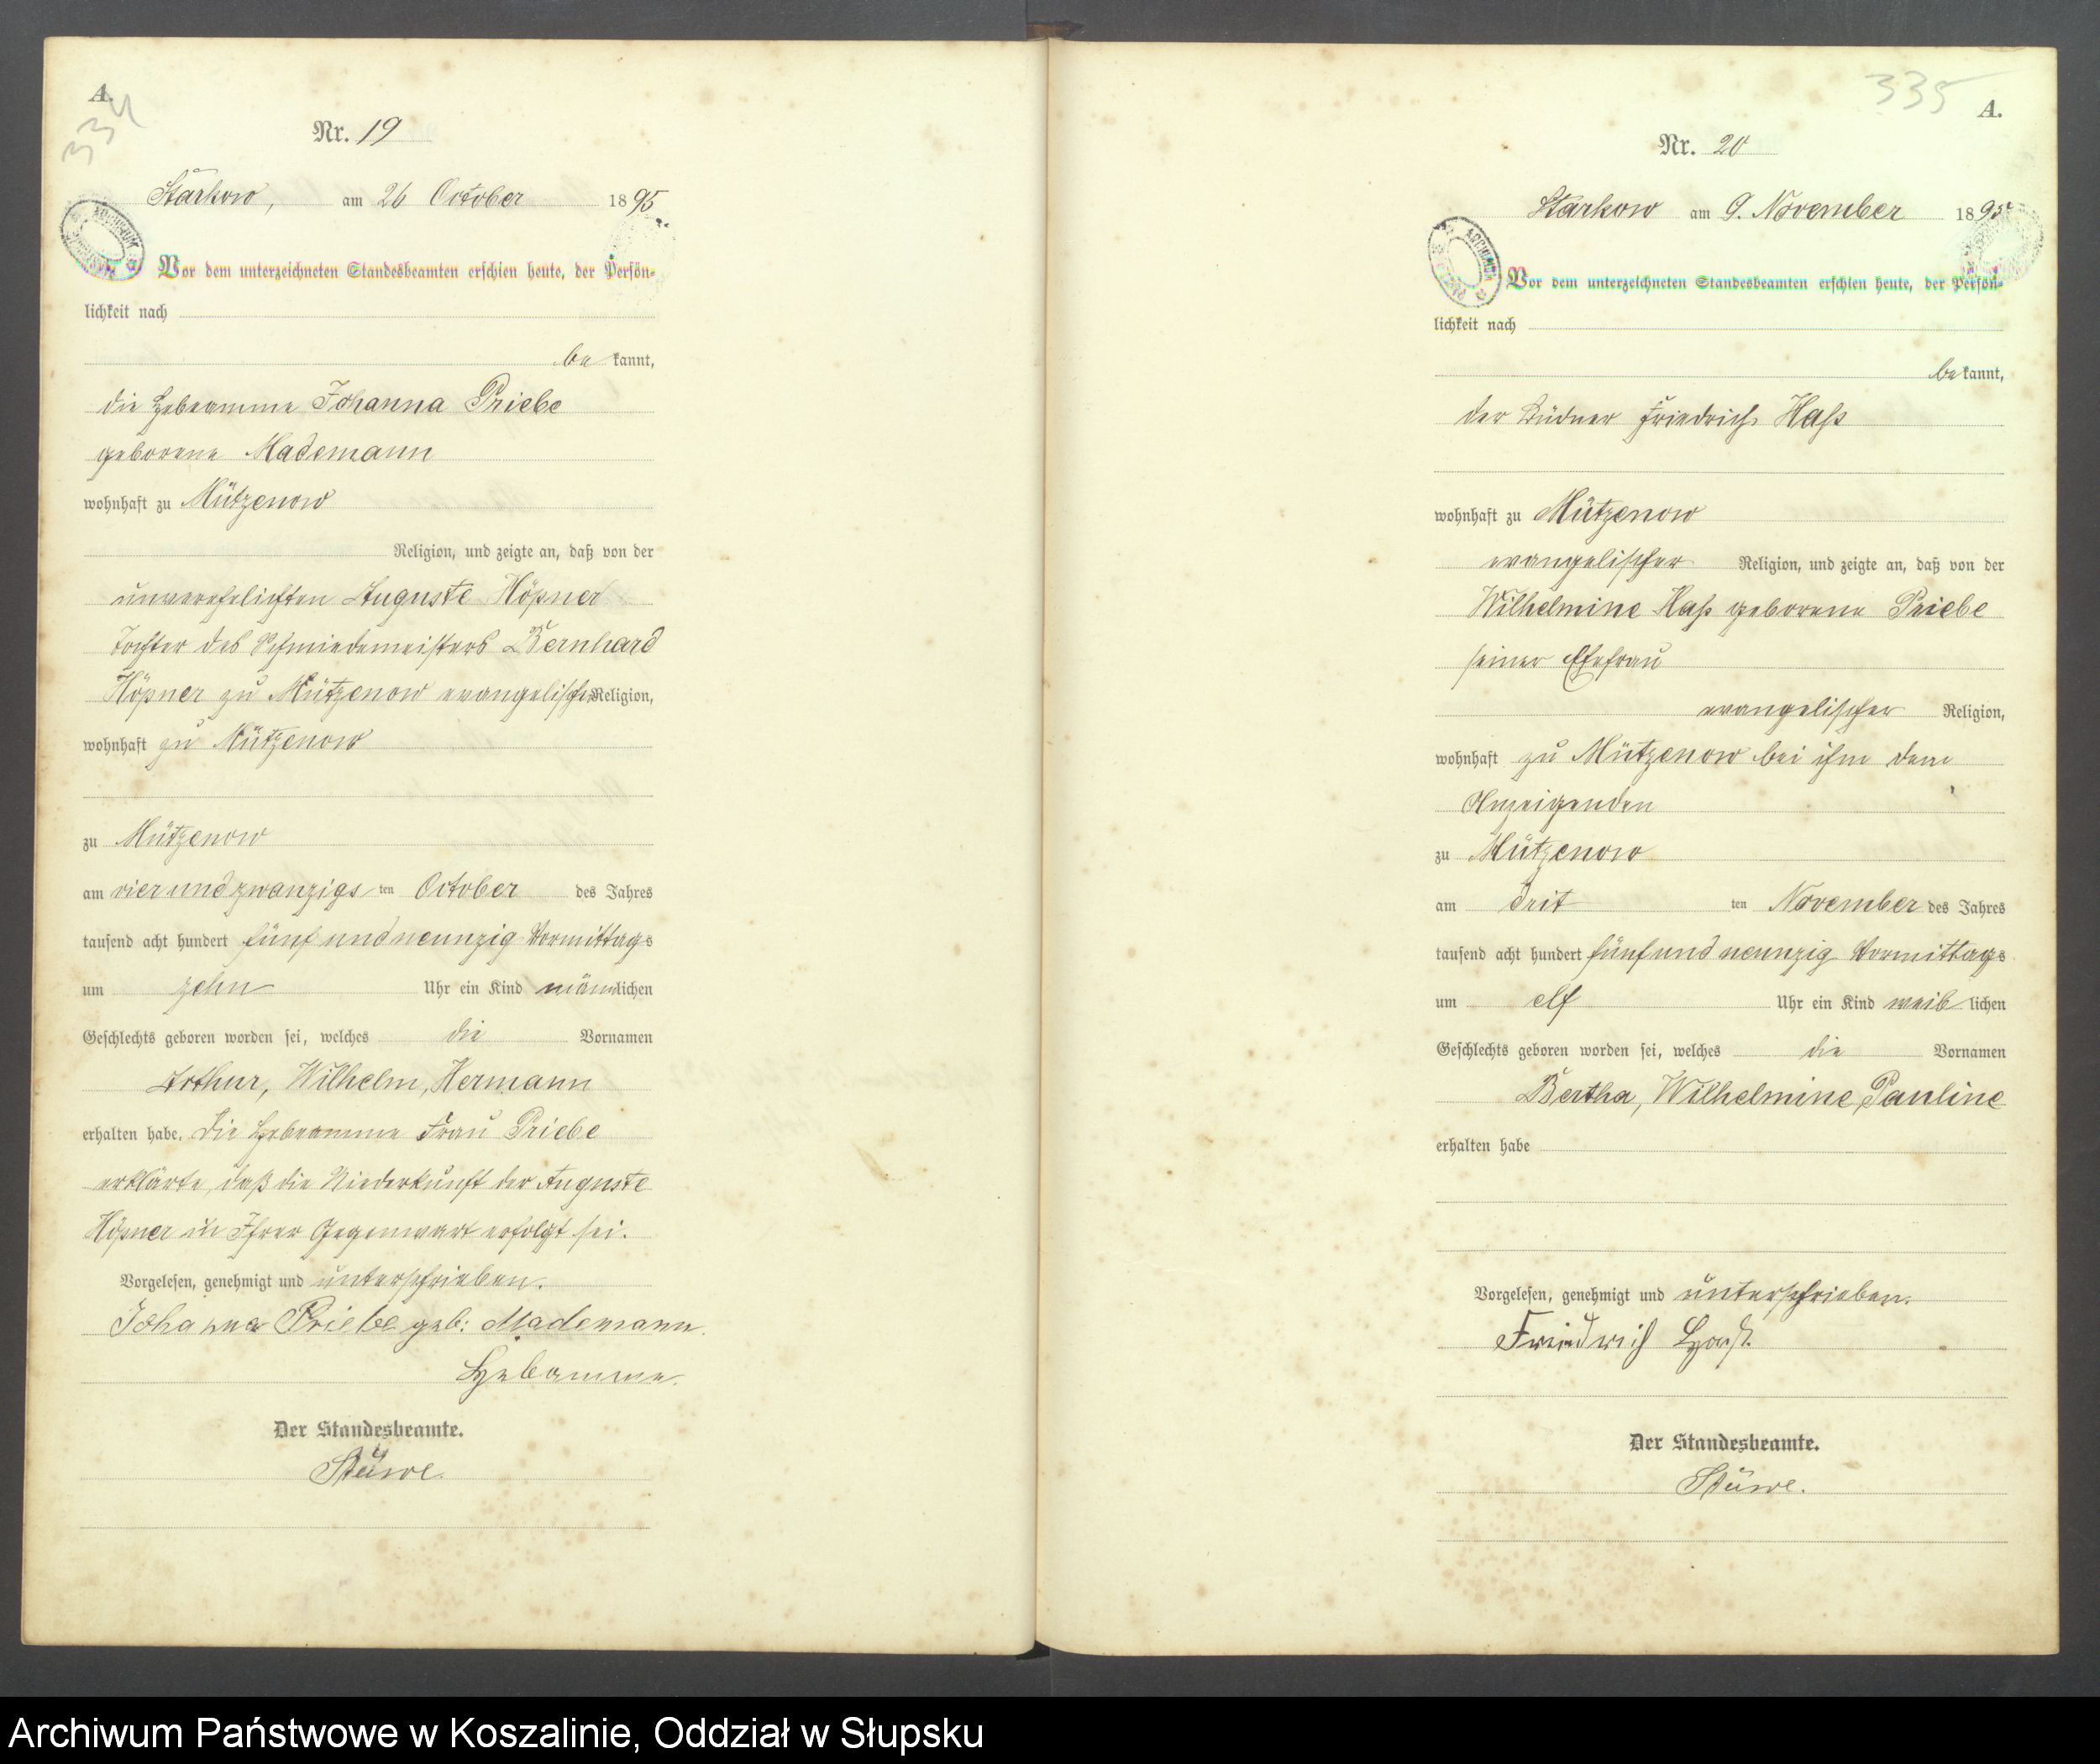 A.
334
Nr. 19
Starkow, am 26 October 1895
Vor dem unterzeichneten Standesbeamten erschien heute, der Persön-
lichkeit nach
be kannt,
die Hebeamme Johanna Priebe
geborene Mademann
wohnhaft zu Mützenow
Religion, und zeigte an, daß von der
unverehelichten Auguste Höpner
Tochter des Schmiedemeisters Bernhard
Höpner zu Mützenow evangelischer Religion,
wohnhaft zu Mützenow
zu Mützenow
am vierundzwanzigs ten October des Jahres
tausend acht hundert fünf und neunzig Vormittags
um zehn Uhr ein Kind männlichen
Geschlechts geboren worden sei, welches die Vornamen
Arthur, Wilhelm, Hermann
erhalten habe. Die Hebeamme Frau Priebe
erklärte, daß die Niederkunft der Auguste
Höpner in Ihrer Gegenwart erfolgt sei.
Vorgelesen, genehmigt und unterschrieben.
Johanna Priebe geb: Mademann.
Hebamme.
Der Standesbeamte.
Stüwe.
335
A.
Nr. 20
Starkow am 9. November 1895
Vor dem unterzeichneten Standesbeamten erschien heute, der Persön-
lichkeit nach
be kannt,
der Büdner Friedrich Haß
wohnhaft zu Mützenow
evangelischer Religion, und zeigte an, daß von der
Wilhelmine Haß geborene Priebe
seiner Ehefrau
evangelischer Religion,
wohnhaft zu Mützenow bei ihm dem
Anzeigenden
zu Mützenow
am drit ten November des Jahres
tausend acht hundert fünf und neunzig Vormittags
um elf Uhr ein Kind weib lichen
Geschlechts geboren worden sei, welches die Vornamen
Bertha, Wilhelmine, Pauline
erhalten habe
Vorgelesen, genehmigt und unterschrieben.
Friedrich Haß.
Der Standesbeamte.
Stüwe.
Archiwum Państwowe w Koszalinie, Oddział w Słupsku